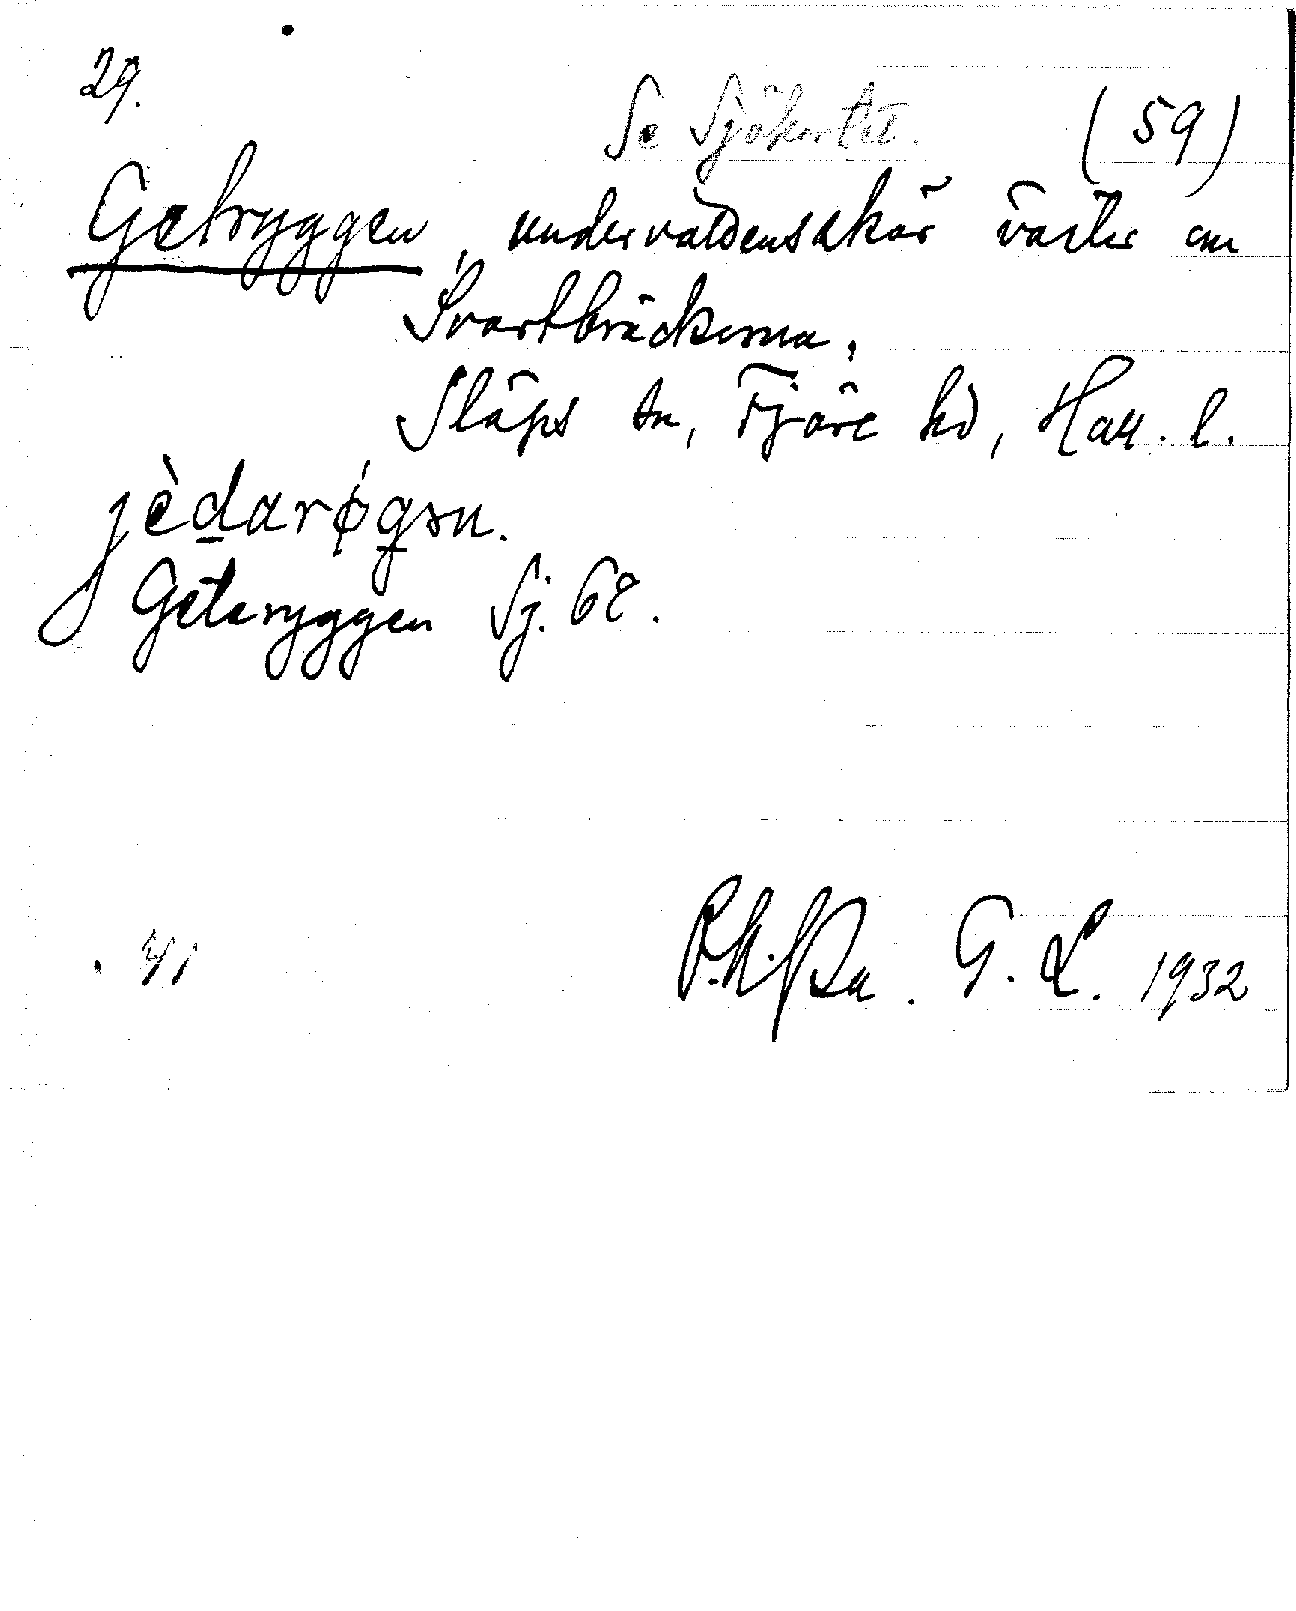 29.
Se Sjökortet. (59)
Getryggen, undervattensskär väster om
Svartbrackorna,
Släps sn, Fjäre hd, Hall. l.
jèdarǿgən.
Geteryggen Sj. 68.
41
G. L. 1932